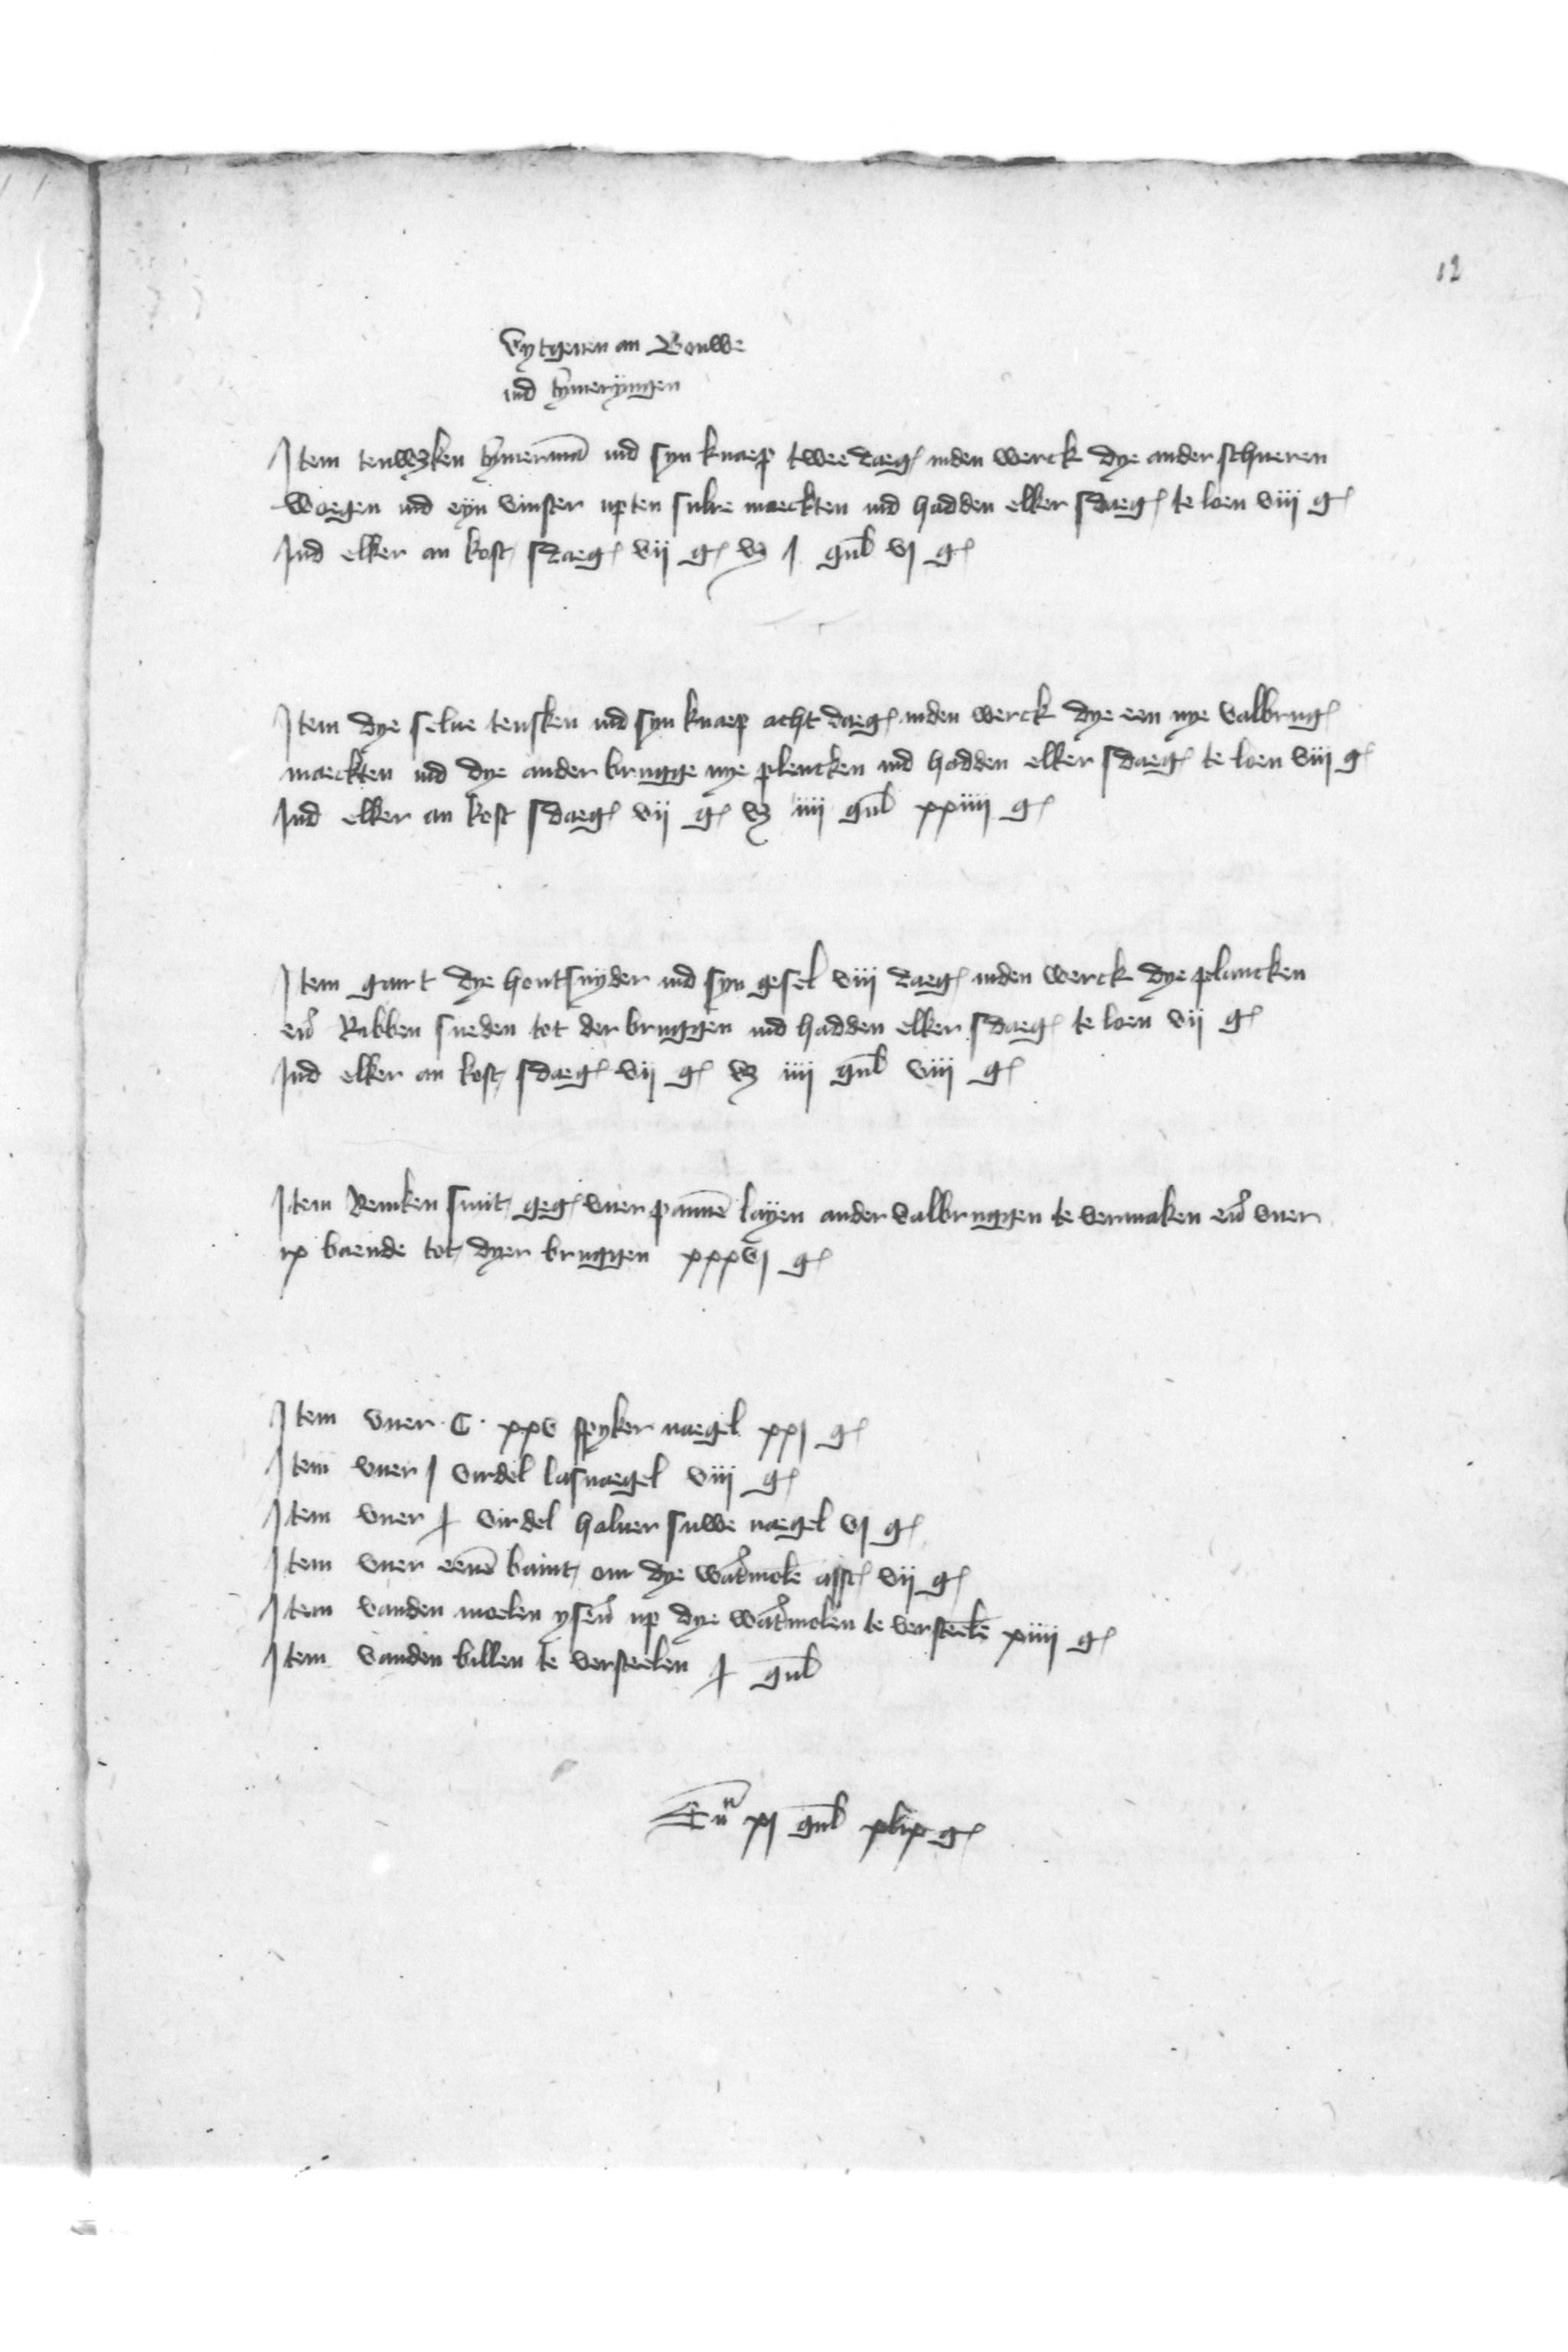 12
Uytgeuen an Bouwe
ind tymeryngen
Item tenwsken tymerman̄ ind syn knaep twee daeg inden werck dye ander schueren
woegen ind eyn vinster upten sulre maeckten ind hadden elker sdaeg te loen viii g
Ind elker an kost sdaeg vii g vz j gul̄ vj g
Item dye selue tensken ind syn knaep acht daeg inden werck dye een nye valbrug
maeckten ind dye ander brugge nye plencken ind hadden elker sdaeg te loen viii g
Ind elker an kost sdaeg vii g vz iiii gul̄ xxiiii g
Item gart dye houtsnyder ind syn gesel viii daeg inden werck dye plancken
en̄ Ribben sneden tot der bruggen ind hadden elker sdaeg te loen vii g
Ind elker an kost sdaeg vii g vz iiii gul̄ viii g
Item Remken smit geg vuer pannē layen ander valbruggen te vermaken en̄ vuer
ix baende tot dyer bruggen xxxvj g
Item vuer C xxv spyker naegel xxj g
Item vuer j virdel lasnaegel viii g
Item vuer virdel haluer suwe naegel vj g
Item vuer eenē baint om dye wat̄molē assc vii g
Item vanden moelen ysen̄ up dye wat̄molen te versteelē xiiii g
Item vanden billen te versteelen gul̄
Sūᵃ xj gul̄ xlix g